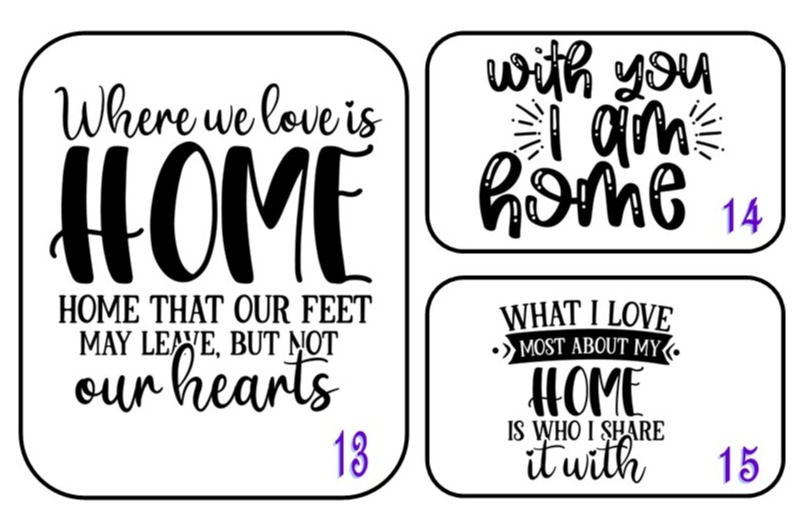 Where we love is
HOME
HOME THAT OUR FEET
MAY LEAVE, BUT NOT
our hearts
13
with you
I am
home
14
WHAT I LOVE
MOST ABOUT MY
HOME
IS WHO I SHARE
it with
15